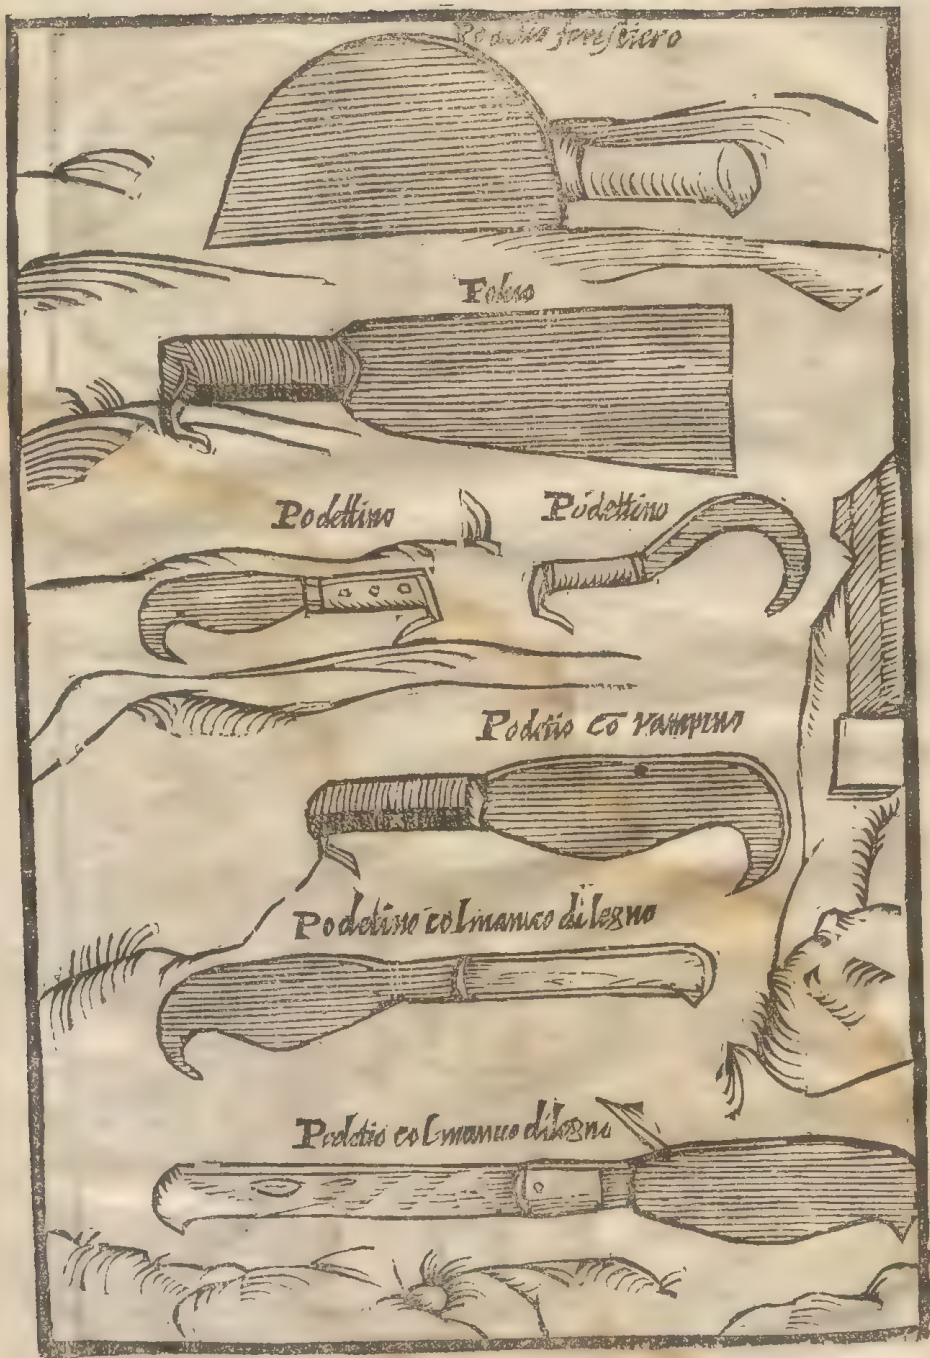 forestiero
Podettino
Podettino
Podetio cō rampino
Podetino col manico di legno
Podetio col manico di legno